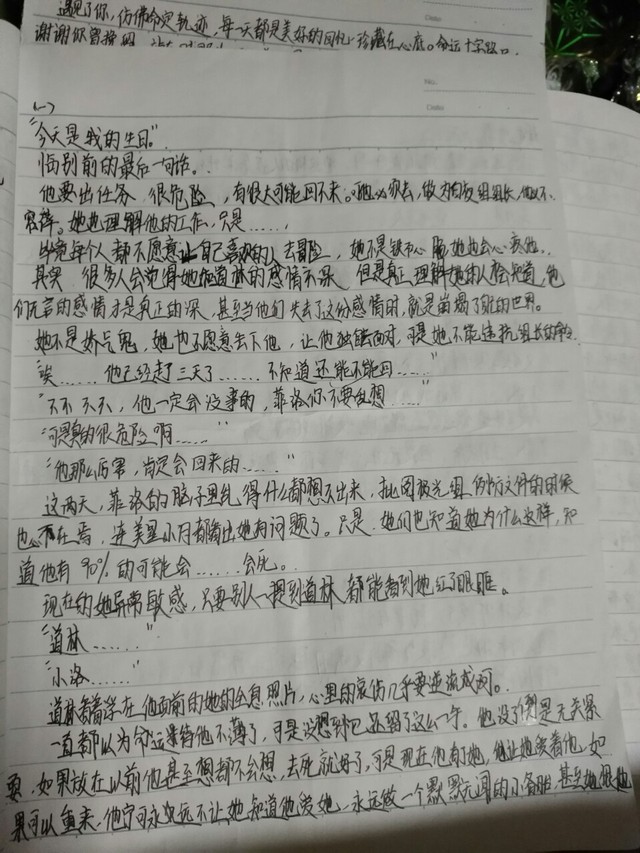 遇见了你，仿佛命定轨迹，每一天都是美好的回忆，珍藏在心底。命运十字路口，
谢谢你
No.
Date
(一)
“今天是我的生日。”
临别前的最后一句话。
他要出任务，很危险，有很大可能回不来。他必须去，做为组长，他
她也理解他的工作，只是……
毕竟每个人都不愿意让自己喜欢的人去冒险，她不是铁心肠她也会心疼他。
其实，很多人会觉得她和道林的感情不深，但是真正理解她的人会知道，他
们无言的感情才是真正的深，甚至当他们失去了这份感情时，就是崩塌了的世界。
她不是娇气鬼，她也不愿意丢下他，让他独自面对，可是她不能违抗组长的命令。
“唉……他已经走了三天了……不知道还能不能回……”
“不不不不，他一定会没事的，菲洛你不要乱想……”
“可是真的很危险啊……”
“他那么厉害，肯定会回来的……”
这两天，菲洛的脑子里乱得什么都想不出来，批阅极光组的文件的时候
也心不在焉，连美星小月都看出她有问题了。只是，她们也知道她为什么这样，知
道他有90%的可能会……会死。
现在的她异常敏感，只要别人一提到道林都能看到她红了眼眶。
“道林……”
“小洛……”
道林看着浮在他面前的她的全息照片，心里的哀伤几乎要逆流成河。
一直都以为命运来待他不薄了，可是没想到它还留了这么一手。他没了倒是无关紧
要，如果放在以前他甚至想都不会想，去死就好了，可是现在他有了她，他让她爱着他，如
果可以重来，他宁可永远不让她知道他爱她，永远做一个默默无闻的小